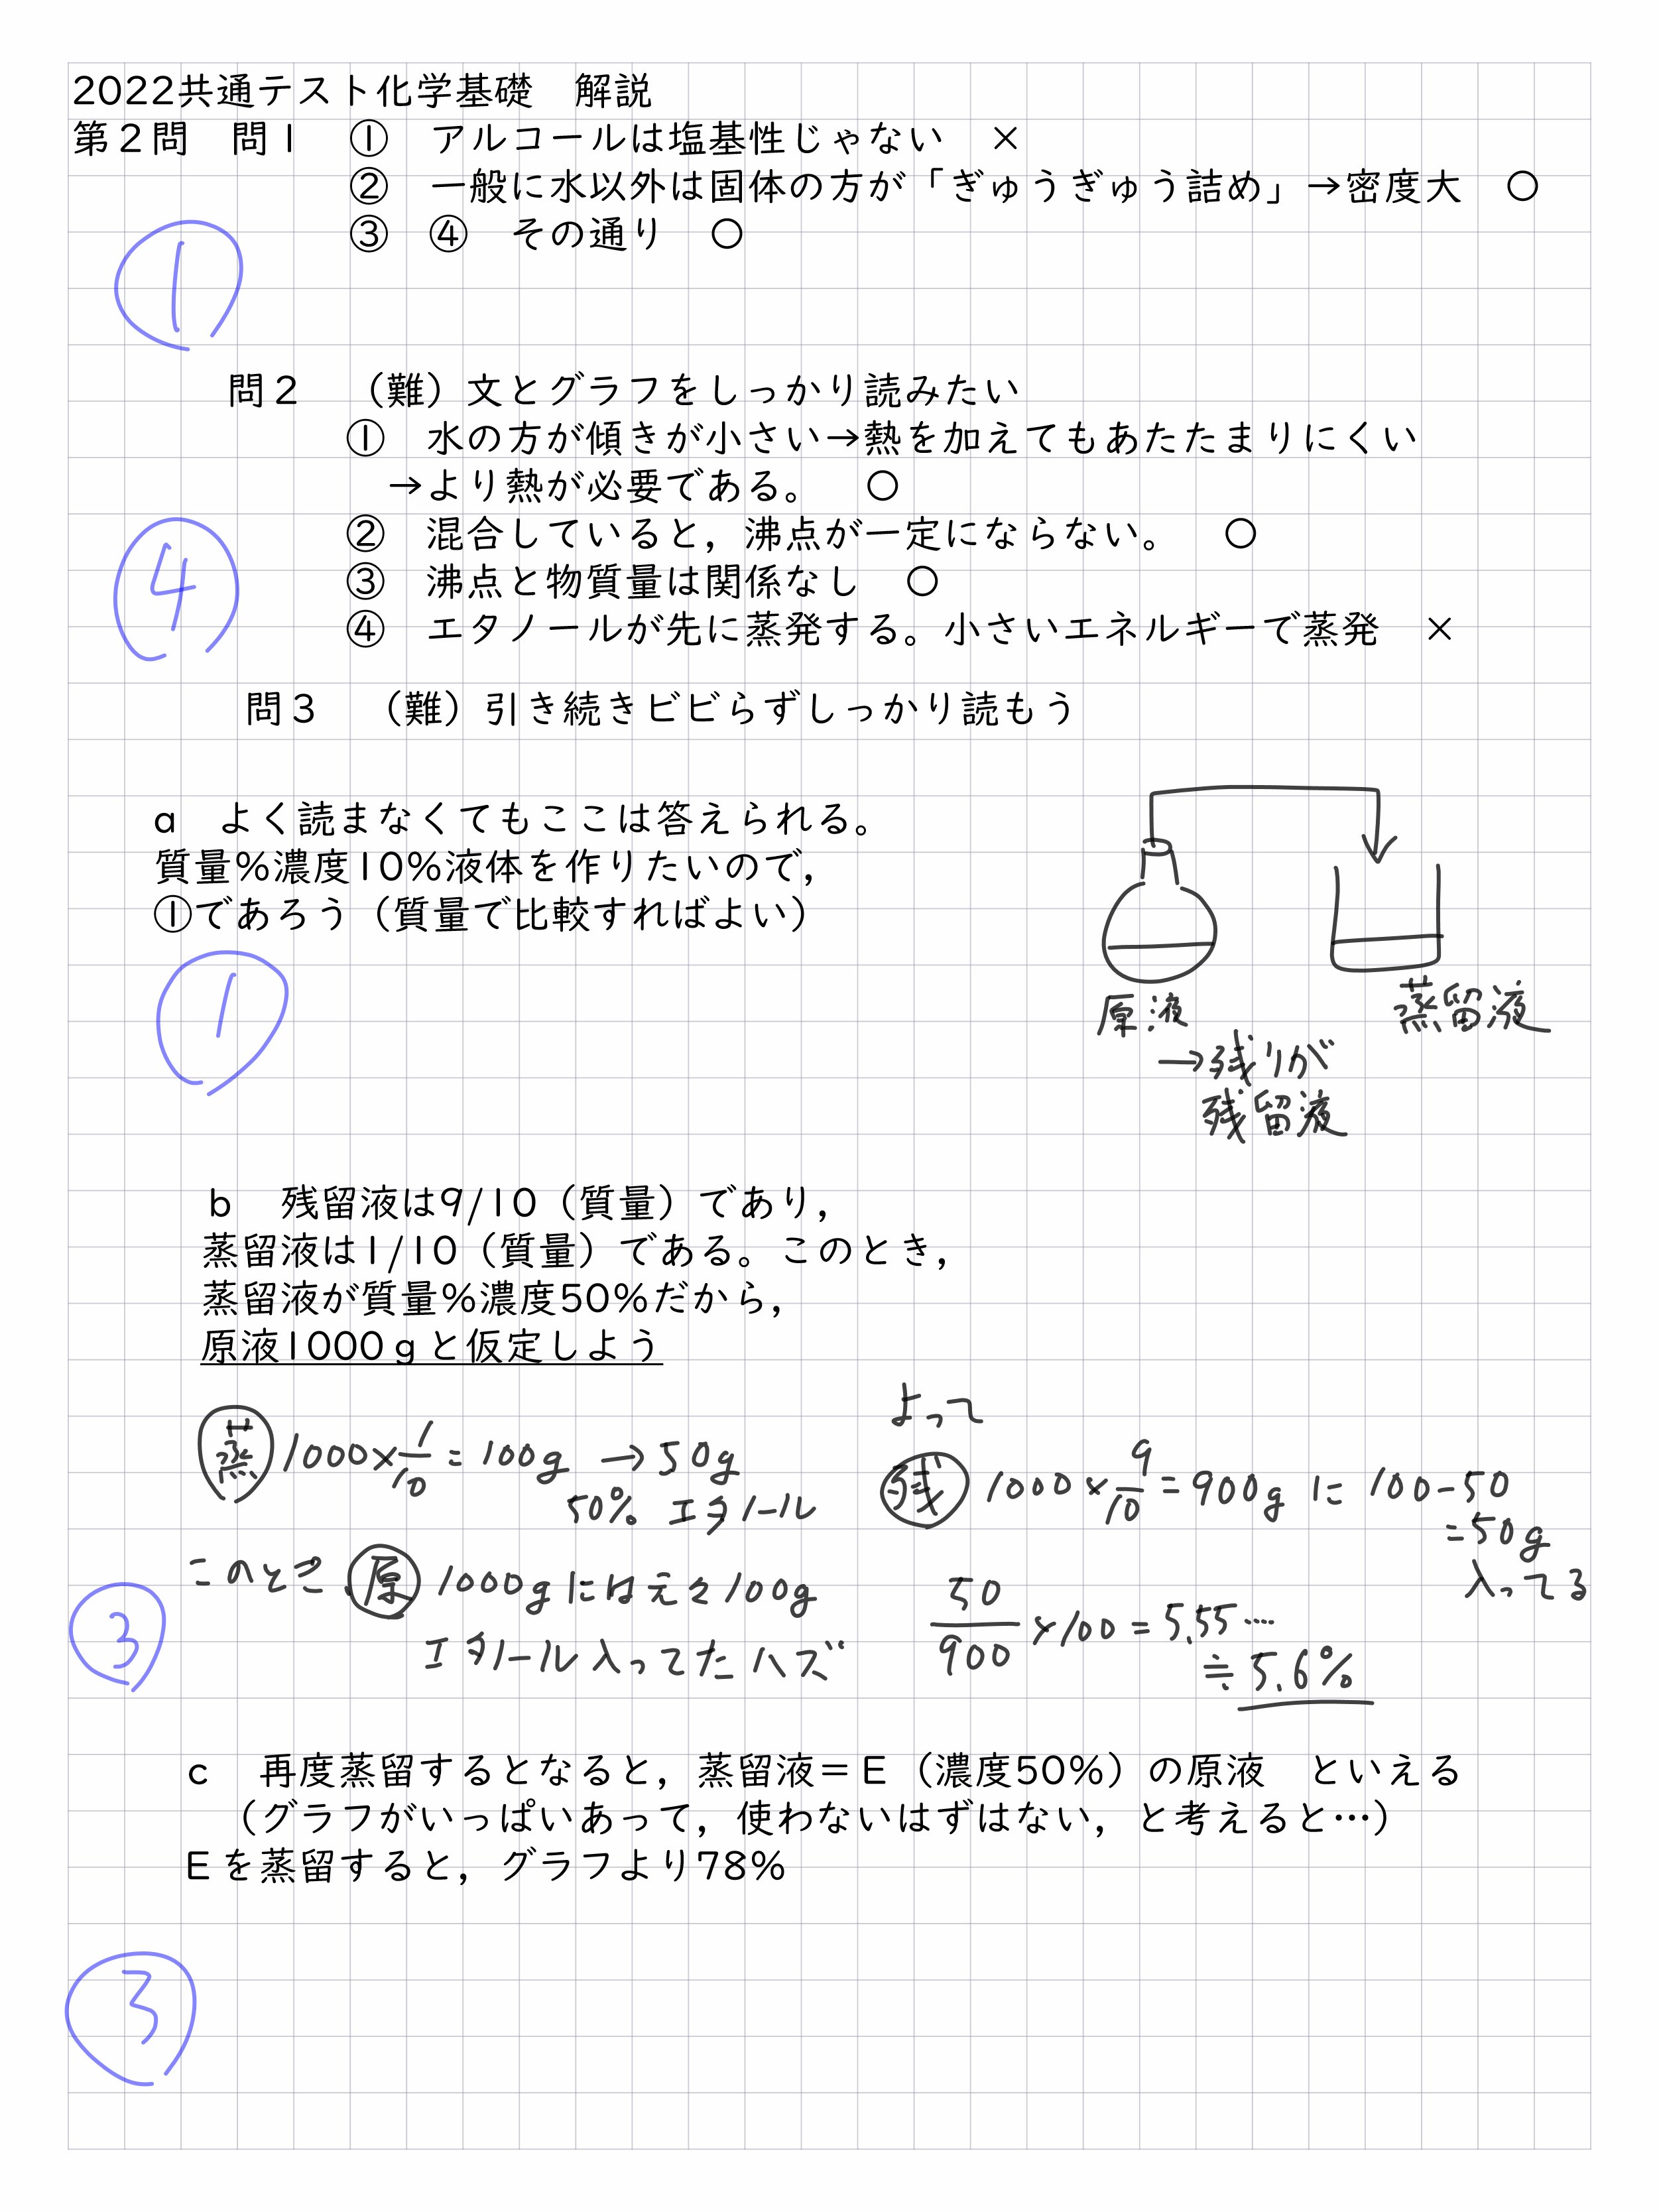 2022共通テスト化学基礎　解説
第2問　問1　①　アルコールは塩基性じゃない　×
②　一般に水以外は固体の方が「ぎゅうぎゅう詰め」→密度大　○
③　④　その通り　○
①
問2　（難）文とグラフをしっかり読みたい
①　水の方が傾きが小さい→熱を加えてもあたたまりにくい
→より熱が必要である。　○
②　混合していると，沸点が一定にならない。　○
③　沸点と物質量は関係なし　○
④　エタノールが先に蒸発する。小さいエネルギーで蒸発　×
④
問3　（難）引き続きビビらずしっかり読もう
a　よく読まなくてもここは答えられる。
質量％濃度10％液体を作りたいので，
①であろう（質量で比較すればよい）
①
原液
→残りが
残留液
蒸留液
b　残留液は9/10（質量）であり，
蒸留液は1/10（質量）である。このとき，
蒸留液が質量％濃度50％だから，
原液1000ｇと仮定しよう
蒸 1000×1/10＝100g →50g
50% エタノール
このとき、原 1000gには元々100g
エタノール入ってたハズ
よって
残 1000×9/10＝900g に 100－50
＝50g
入ってる
50/900×100＝5.55…
≒5.6%
③
c　再度蒸留するとなると，蒸留液＝E（濃度50％）の原液　といえる
（グラフがいっぱいあって，使わないはずはない，と考えると…）
Eを蒸留すると，グラフより78％
③